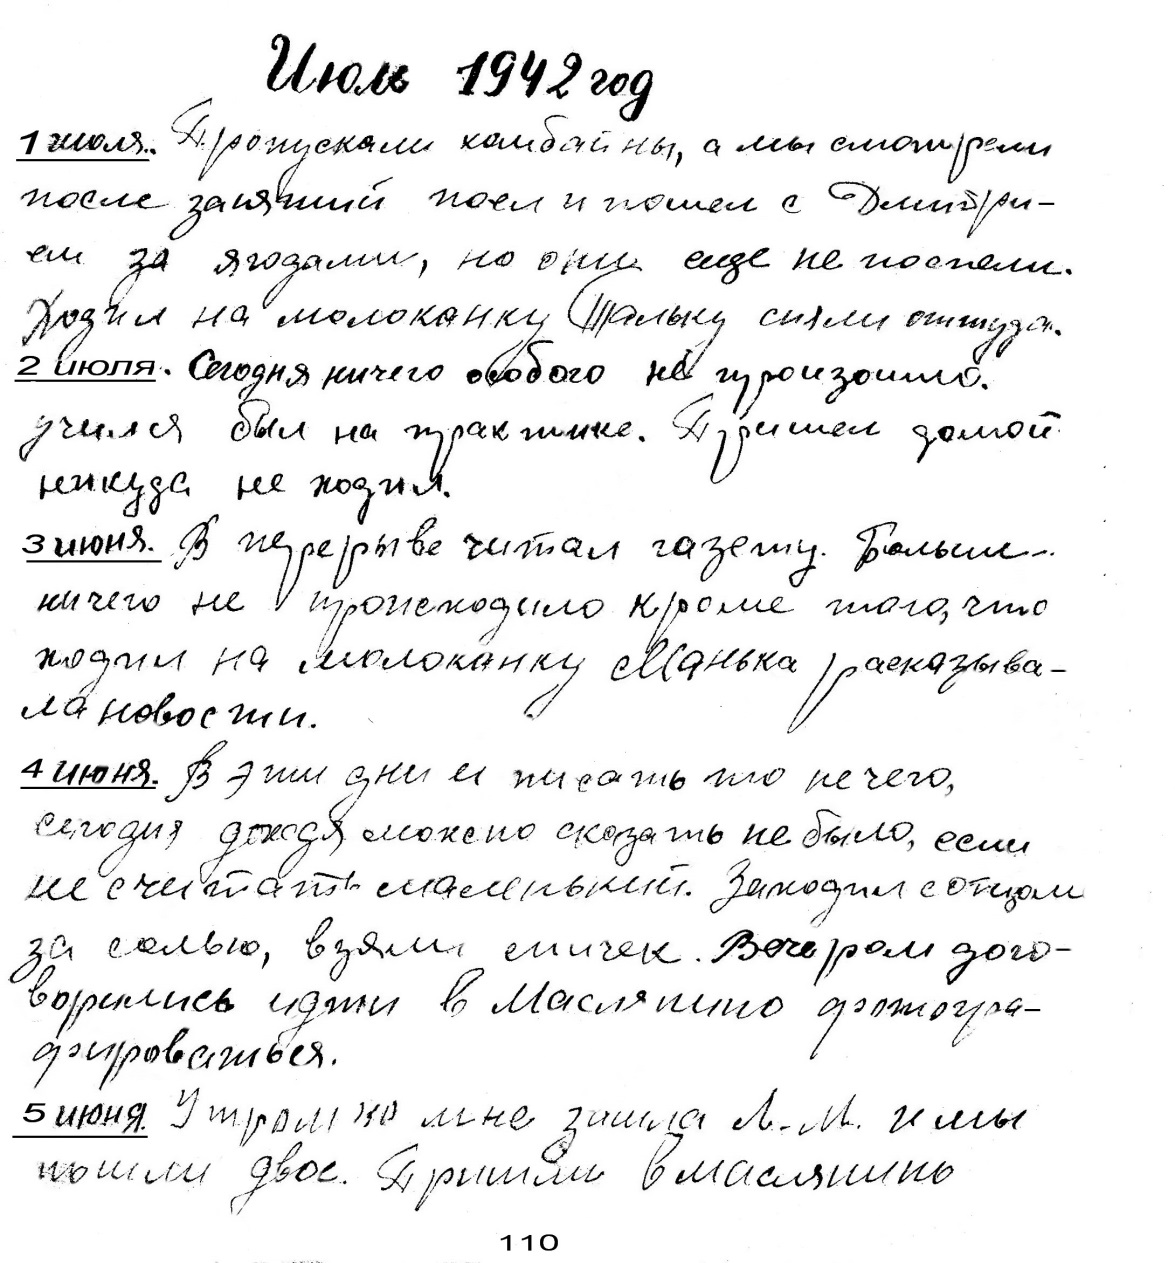 Июль 1942 год
1 июля. Пропускали комбайны, а мы смотрели
после занятий поел и пошел с Дмитри-
ем за ягодами, но они еще не поспели.
Ходил на молоканку Тальку сняли оттуда.
2 июля. Сегодня ничего особого не произошло.
учился был на практике. Пришел домой
никуда не ходил.
3 июня. В перерыве читал газету. Больше
ничего не происходило кроме того, что
ходил на молоканку Манька расказыва-
ла новости.
4 июня. В эти дни и писать то нечего,
сегодня дождя можно сказать не было, если
не считать маленький. Заходил с отцом
за солью, взяли спичек. Вечером дого-
ворились идти в Маслянино фотогра-
фироваться.
5 июня. Утром ко мне зашла Л.М. и мы
пошли двое. Пришли в маслянино
110